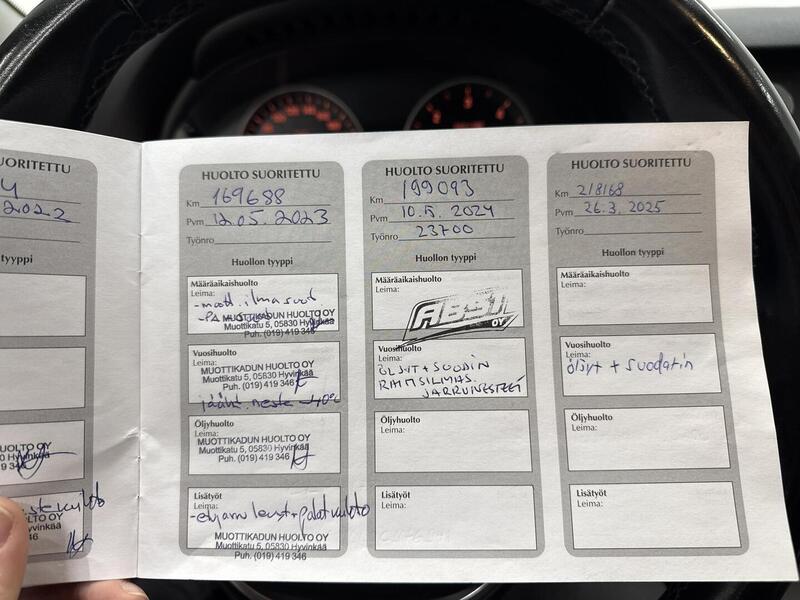 UORITETTU
4
2022
tyyppi
UOLTO OY
30 Hyvinkää
9 346
LTO OY
Hyvinkää
346
HUOLTO SUORITETTU
Km 169688
Pvm 12.05.2023
Työnro
Huollon tyyppi
Määräaikaishuolto
Leima:
-moott.ilmasuod.
MUOTTIKADUN HUOLTO OY
Muottikatu 5, 05830 Hyvinkää
Puh. (019) 419 346
Vuosihuolto
MUOTTIKADUN HUOLTO OY
Muottikatu 5, 05830 Hyvinkää
Puh. (019) 419 346
jäähd.neste -40°C
Öljyhuolto
Leima:
MUOTTIKADUN HUOLTO OY
Muottikatu 5, 05830 Hyvinkää
Puh. (019) 419 346
Lisätyöt
Leima:
MUOTTIKADUN HUOLTO OY
Muottikatu 5, 05830 Hyvinkää
Puh. (019) 419 346
HUOLTO SUORITETTU
Km 199093
Pvm 10.5. 2024
Työnro 23700
Huollon tyyppi
Määräaikaishuolto
Leima:
OY
Vuosihuolto
Leima:
ÖLJYT + SUODIN
JARRUNESTEET
Öljyhuolto
Leima:
Lisätyöt
Leima:
HUOLTO SUORITETTU
Km 218168
Pvm 26.3. 2025
Työnro
Huollon tyyppi
Määräaikaishuolto
Leima:
Vuosihuolto
Leima:
öljyt + suodatin
Öljyhuolto
Leima:
Lisätyöt
Leima: